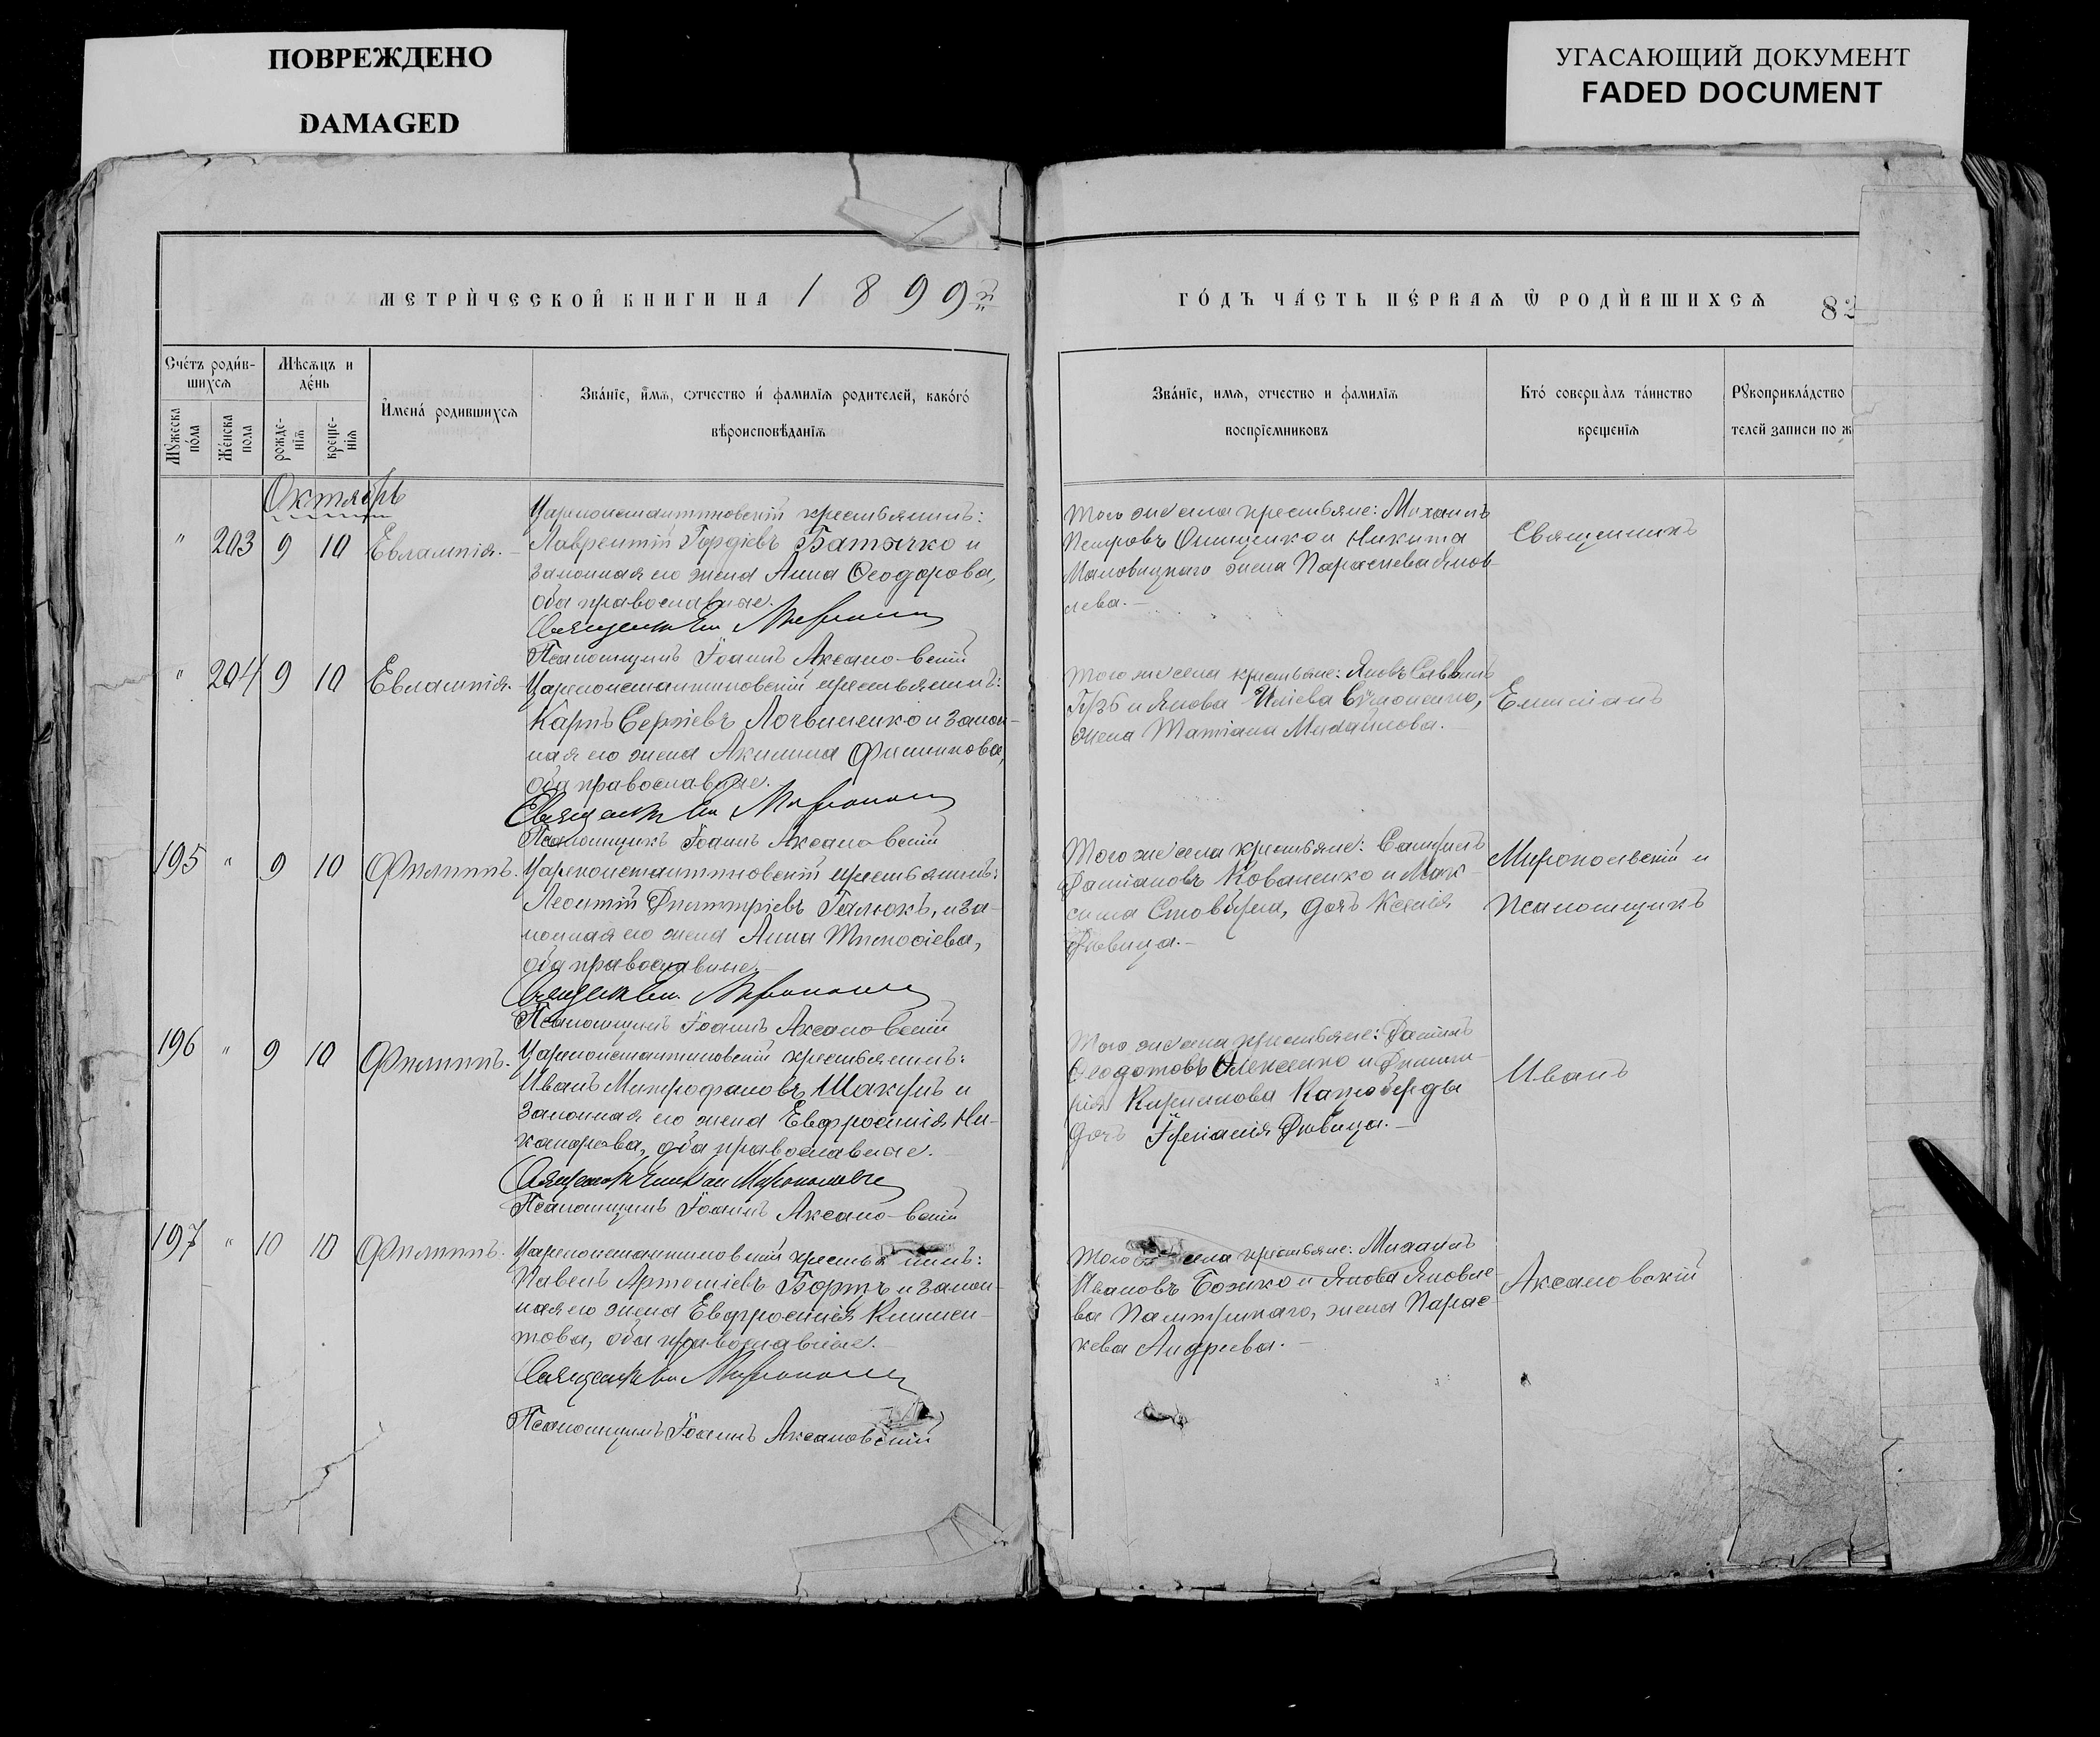 ПОВРЕЖДЕНО
DAMAGED
УГАСАЮЩИЙ ДОКУМЕНТ
FADED DOCUMENT
МЕТРИ́ЧЕСКОЙ КНИГИ НА 1899й
ГО́ДЪ ЧА́СТЬ ПЕ́РВАѦ Ѡ҆ РОДИ́ВШИХСѦ
82
Сче́тъ роди́в-
шихсѧ
Мѣсѧцъ и
де́нь
Мꙋжеска
по́ла
Же́нска
пола
рожде-
нїѧ
креще-
нїѧ
И҆мена́ родившихсѧ
Зва́нїе, и҆́мѧ, ѻтчество и҆ фамилїѧ родителей, како́гѡ
вѣроисповѣ́данїѧ
Зва́нїе, имѧ, отчество и фамилїѧ
воспрїемниковъ
Кто́ соверша̀лъ та́инство
крещенїѧ
Рꙋкоприкла́дство
телей записи по ж
Октябрь
" 203 9 10 Евлампія.
Цареконстантиновскій крестьянинъ:
Лаврентій Гордіевъ Батечко и
законная его жена Анна Ѳеодорова,
оба православные.
Священникъ Ем. Мирополь
Псаломщикъ Іоаннъ Аксановскій
Того же села крестьяне: Михаилъ
Петровъ Онищенко и Никита
Маловицкаго жена Параскева Яков-
лева.
Священникъ
" 204 9 10 Евлампія.
Цареконстантиновскій крестьянинъ:
Карпъ Сергіевъ Логвиненко и закон-
ная его жена Акилина Филиппова,
оба православные.
Священникъ Ем. Мирополь
Псаломщикъ Іоаннъ Аксановскій
Того же села крестьяне: Яковъ Саввинъ
и Якова Иліева
жена Татіана Михайлова.
Емиліанъ
195 " 9 10 Филиппъ.
Цареконстантиновскій крестьянинъ:
Леонтій Димитріевъ Галюкъ, и за-
конная его жена Анна Тимоѳіева,
оба православные.
Священникъ Ем. Мирополь
Псаломщикъ Іоаннъ Аксановскій
Того же села крестьяне:
Даміановъ Коваленко и Мак-
сима дочь Ксенія
Дѣвица.
Миропольскій и
Псаломщикъ
196 " 9 10 Филиппъ.
Цареконстантиновскій крестьянинъ:
Иванъ Митрофановъ Шакунъ и
законная его жена Евфросинія Ни-
канорова, оба православные.
Священникъ Емиліан Миропольскі
Псаломщикъ Іоаннъ Аксановскій
Того же села крестьяне:
Ѳеодотовъ Олексенко и Димит-
рія
дочь Дѣвица.
Иванъ
197 " 10 10 Филиппъ.
Цареконстантиновскій крестьянинъ:
Павелъ Артеміевъ Бортъ и закон-
ная его жена Евфросинія Климен-
това, оба православные.
Священникъ Ем. Мирополь
Псаломщикъ Іоаннъ Аксановскій
Того же села крестьяне: Михаилъ
Ивановъ Божко и Якова Яковле-
ва жена Парас-
кева Андреева.
Аксановскій